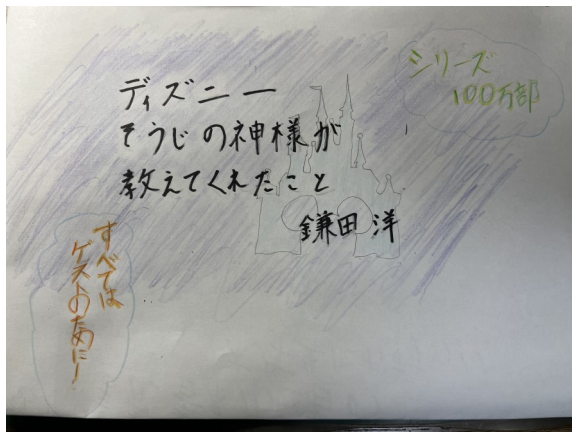 シリーズ
100万部
ディズニー
そうじの神様が
教えてくれたこと
鎌田 洋
すべては
ゲストのために!